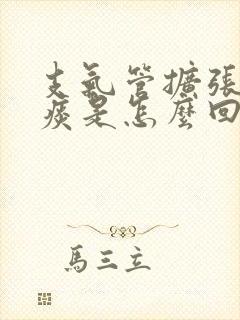 支氣管擴張
痰是怎麼回
馬三立